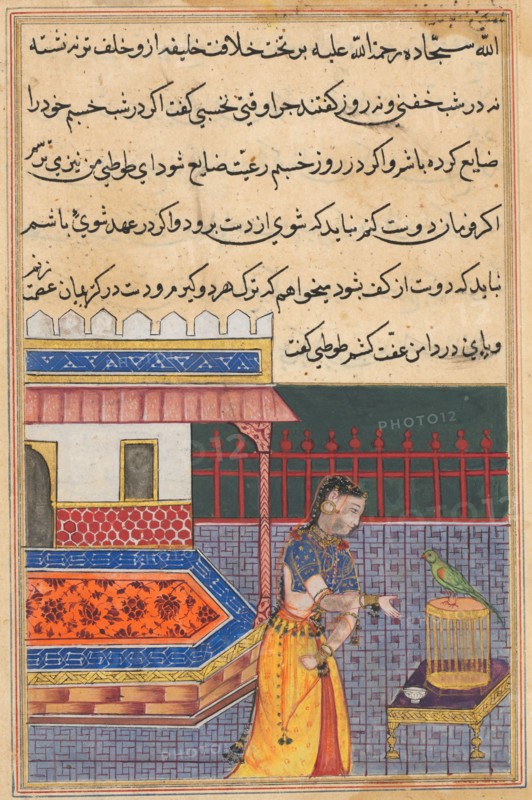 الله سجاده رحمة الله علیه بر تخت خلافت خلیفه از و خلف تو ننشسته
نه در شب خفتی و نه روز گفتند چرا وقتی نخسپی گفت اگر در شب خسپم خود را
ضایع کرده باشم و اگر در روز خسپم رعیت ضایع شود ای طوطی من نیز می ترسم
اگر فرمان دوست کنم نباید که شوی از دست برود و اگر در عهد شوی باشم
نباید که دوست از کف بشود میخواهم که ترک هر دو گیرم و دست در گریبان عصمت زنم
و پای در دامن عفت کشم طوطی گفت
PHOTO12